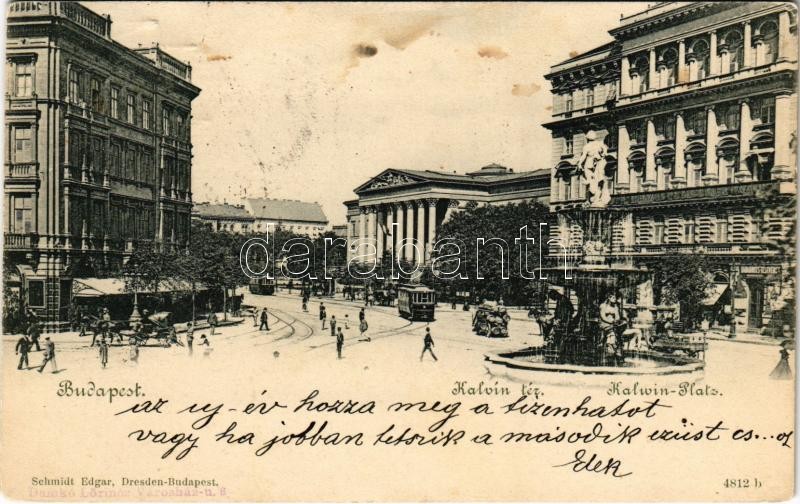 darabanth
Budapest. Kalvín tér. Kalwin-Platz.
az uj-év hozza meg a tizenhatot
vagy ha jobban tetszik a második ezüst cs...ot
Elek
Schmidt Edgar, Dresden-Budapest. 4812 b
Damkó Lőrincz Városház-u. 6